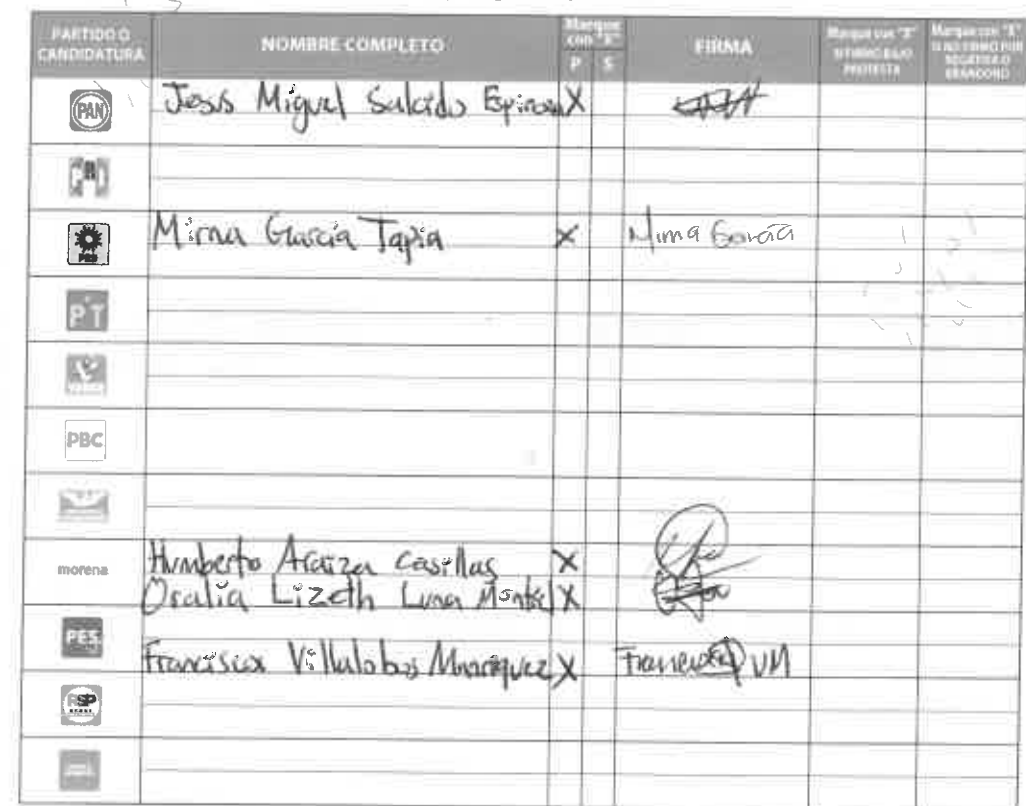 PARTIDO O CANDIDATURA NOMBRE COMPLETO Marque con "X" P S FIRMA Marque con "X" SI FIRMÓ BAJO PROTESTA Marque con "X" SI NO FIRMÓ POR NEGATIVA O ABANDONO
PAN Jesus Miguel Salcido Espinoza X
PRI
PRD Mirna García Tapia X Mirna García
PT
VERDE
PBC
morena Humberto Araiza Casillas X
Oralia Lizeth Luna X
PES
Francisca Villalobos Manriquez X Francisca VM
RSP